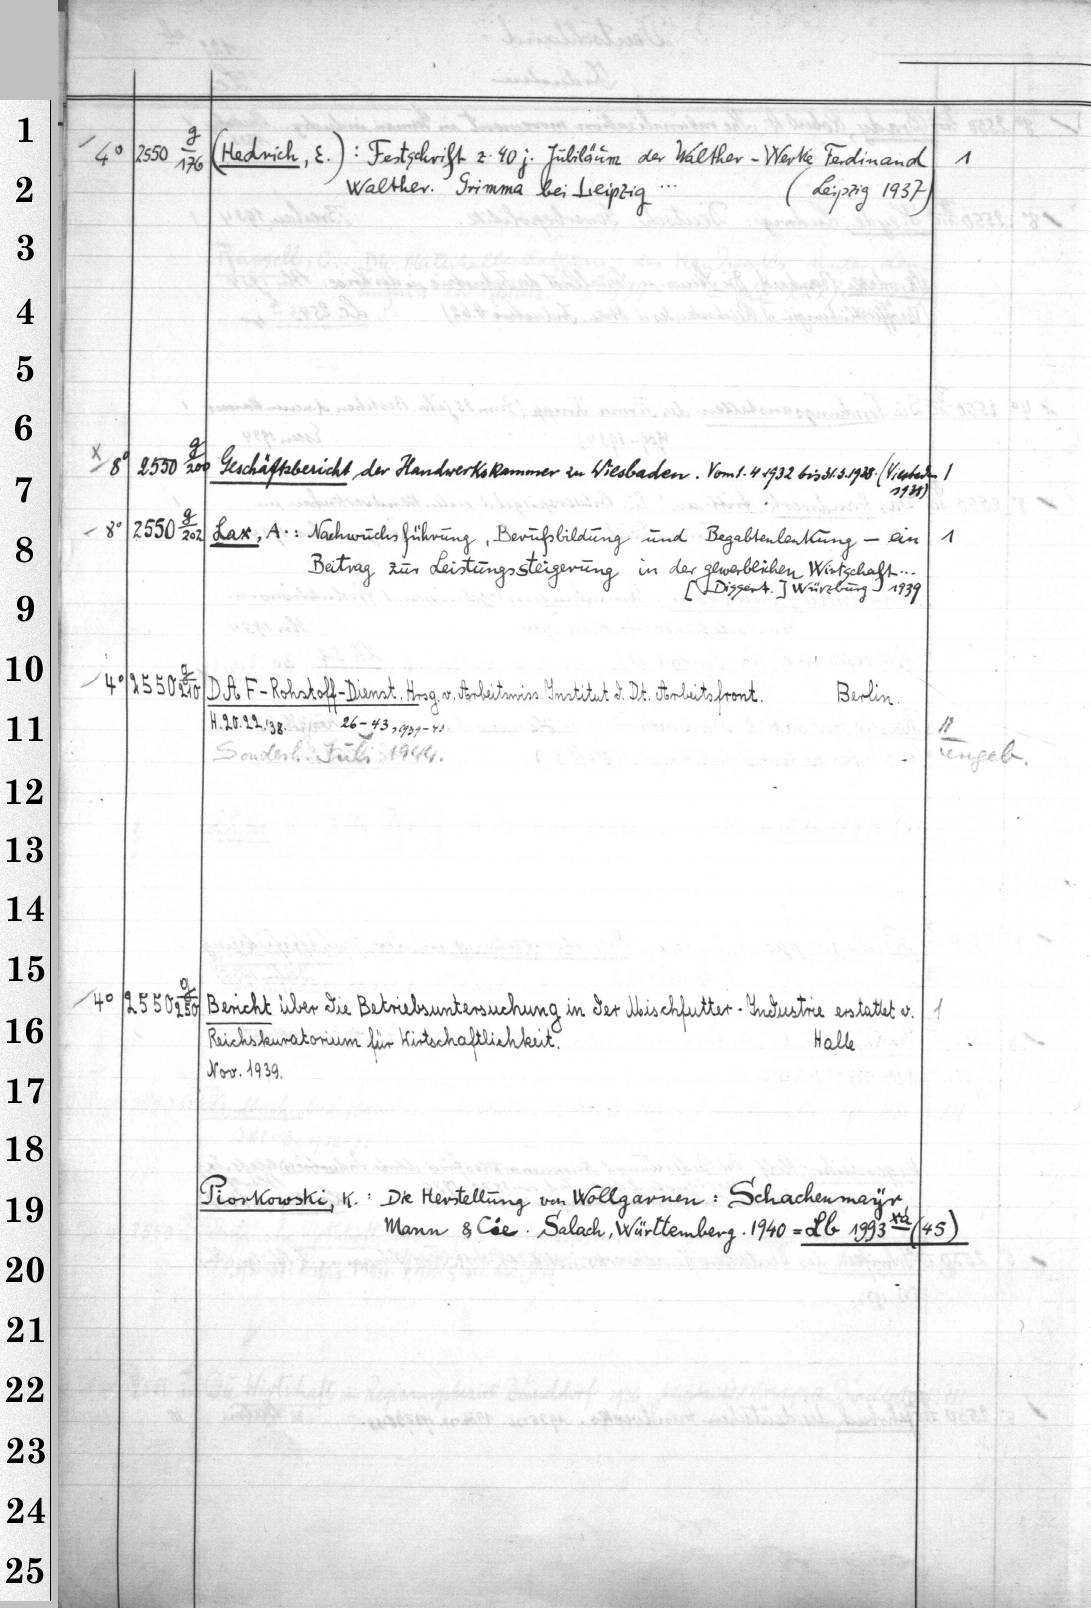 1
4° 2550 g/176 (Hedrich, E.): Festschrift z. 40 j. Jubiläum der Walther-Werke Ferdinand 1
2
Walther. Grimma bei Leipzig ... (Leipzig 1937)
3
4
5
6
x 8° 2550 g/200 Geschäftsbericht der Handwerkskammer zu Wiesbaden. Vom 1.4.1932 bis 31.3.1938. (Wiesbaden 1
7
1938)
8° 2550 g/202 Lax, A.: Nachwuchsführung, Berufsbildung und Begabtenlenkung – ein 1
8
Beitrag zur Leistungssteigerung in der gewerblichen Wirtschaft...
[Dissert.] Würzburg 1939
9
10
4° 2550 g/210 DAF-Rohstoff-Dienst. Hrsg. v. Arbeitswiss. Institut d. Dt. Arbeitsfront. Berlin.
11
H. 20. 22, '38. 26-43, 1939-41
Sonderh. Juli 1944. ungeb.
12
13
14
15
4° 2550 g/250 Bericht über die Betriebsuntersuchung in der Mischfutter-Industrie erstattet v. 1
16
Reichskuratorium für Wirtschaftlichkeit. Halle
17
Nov. 1939.
18
19
Piorkowski, K.: Die Herstellung von Wollgarnen: Schachenmayr,
Mann & Cie. Salach, Württemberg. 1940 = Lb 1993 xa (45)
20
21
22
23
24
25